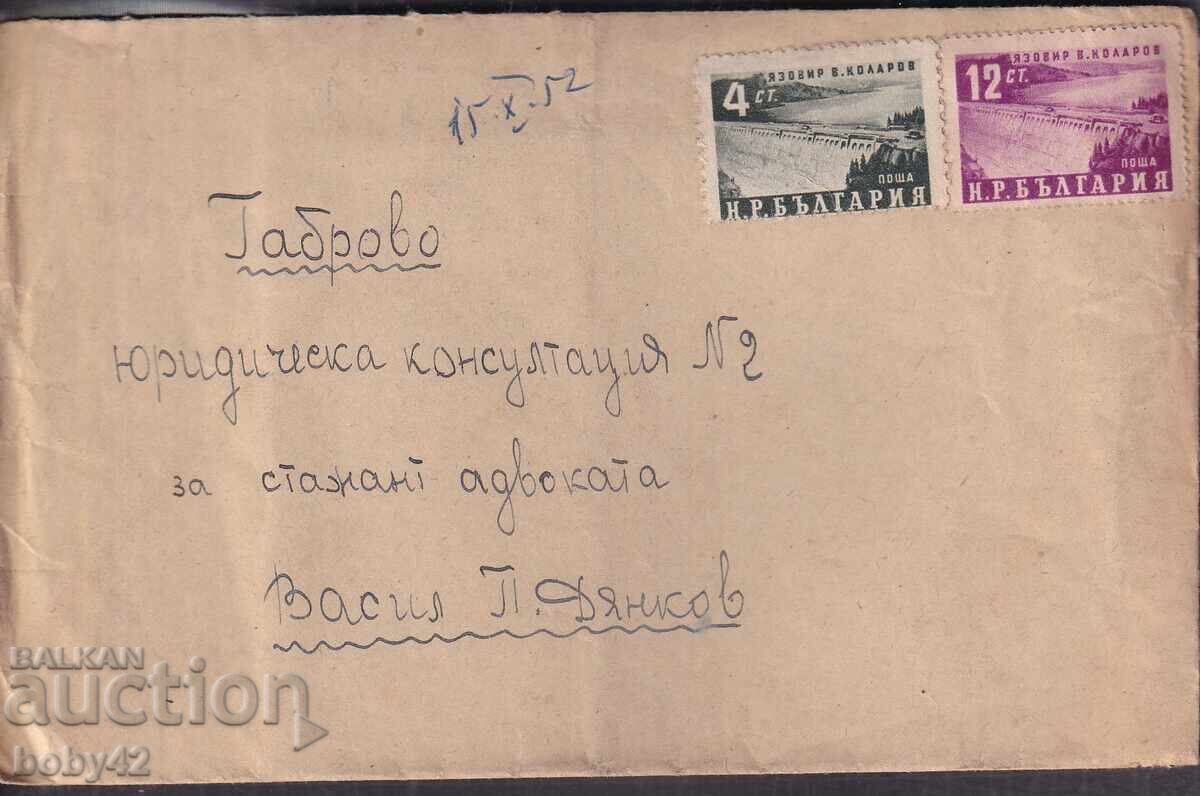 15.XI.52
4 СТ.
ЯЗОВИР В.КОЛАРОВ
ПОЩА
Н.Р.БЪЛГАРИЯ
12 СТ.
ЯЗОВИР В.КОЛАРОВ
ПОЩА
Н.Р.БЪЛГАРИЯ
Габрово
юридическа консултация N2
за стажант адвоката
Васил П. Дянков
BALKAN
auction
boby42